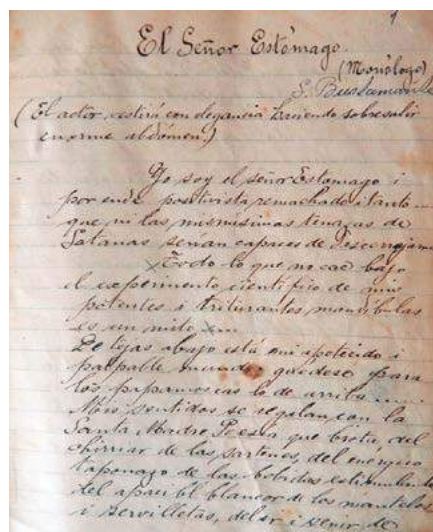 1
El Señor Estómago.
(Monólogo)
S. Bustamante
(El actor vestirá con elegancia haciendo sobresalir
enorme abdómen.)
Yo soy el señor Estomago i
por ende positivista remachado i tanto....
que ni las mismísimas tenazas de
Satanas serían capaces de
Todo lo que no cae bajo
el esperimento científico de mis
potentes i triturantes mandíbulas
es un mito
De tejas abajo está mi apetecido i
palpable mundo, quedese para
los papamoscas lo de arriba......
Mis sentidos se regalan con la
Santa Madre Poesía que brota del
chirriar de las sartenes, del enérgico
taponazo de las bebidas
del apacibl blancor de los manteles
i servilletas, del ir i venir de